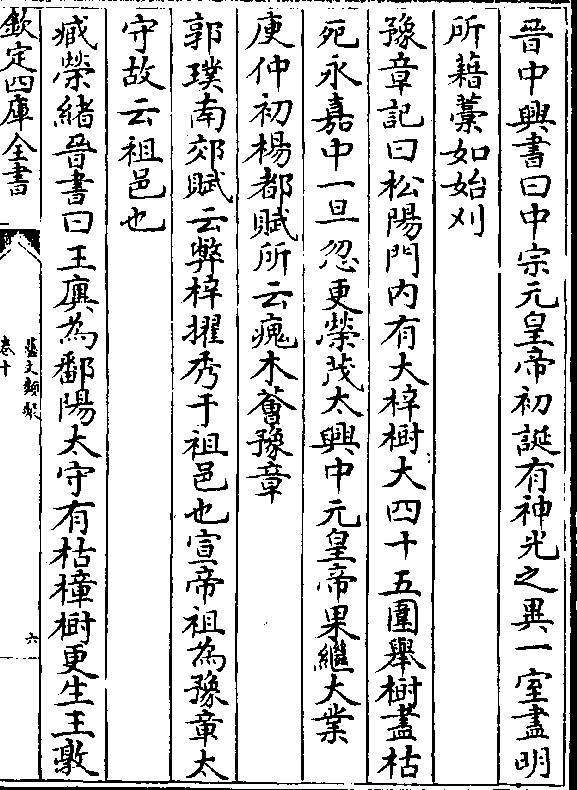 晉中興書曰中宗元皇帝初誕有神光之異一室盡明
所藉藁如始刈
豫章記曰松陽門内有大梓樹大四十五圍舉樹盡枯
死永嘉中一旦忽更榮茂太興中元皇帝果繼大業
庾仲初楊都賦所云瘣木薈豫章
郭璞南郊賦云弊梓擢秀于祖邑也宣帝祖為豫章太
守故云祖邑也
臧榮緒晉書曰王廙為鄱陽太守有枯樟樹更生王敦
欽定四庫全書
藝文類聚
卷十
六